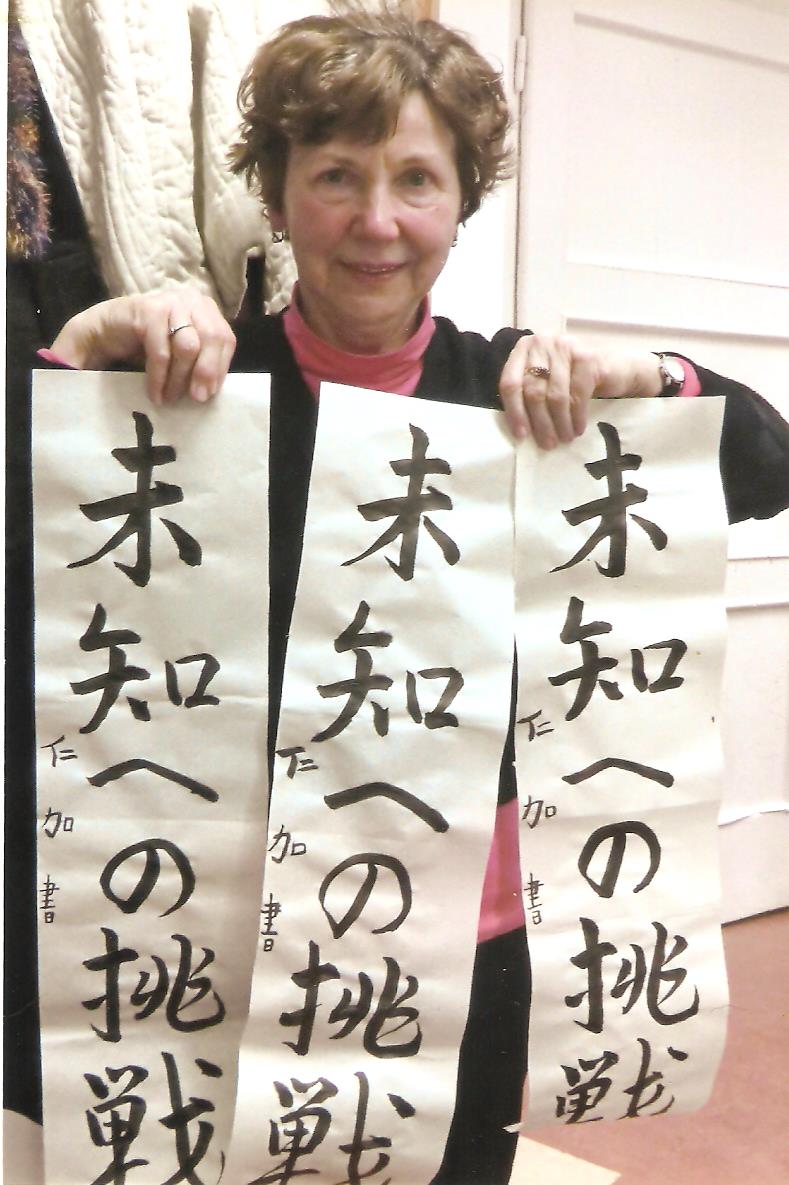 未知への挑戦
仁加書
未知への挑戦
仁加書
未知への挑戦
仁加書